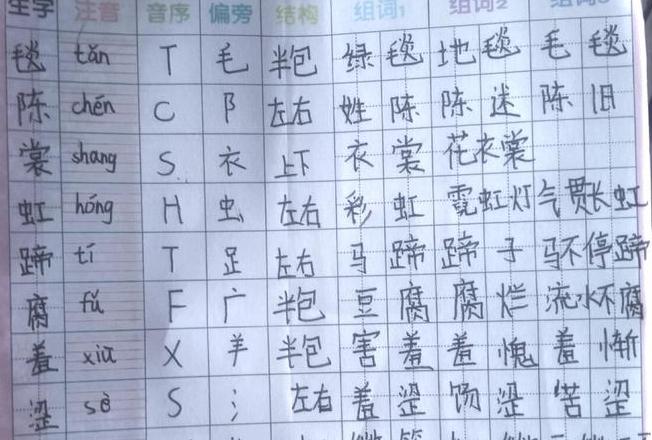 生字 注音 音序 偏旁 结构 组词1 组词2 组词3
毯 tǎn T 毛 半包 绿毯 地毯 毛毯
陈 chén C 阝 左右 姓陈 陈述 陈旧
裳 shang S 衣 上下 衣裳 花衣裳
虹 hóng H 虫 左右 彩虹 霓虹灯 气贯长虹
蹄 tí T 足 左右 马蹄 蹄子 马不停蹄
腐 fǔ F 广 半包 豆腐 腐烂 流水不腐
羞 xiū X 羊 半包 害羞 羞愧 羞惭
涩 sè S 氵 左右 羞涩 涩 苦涩